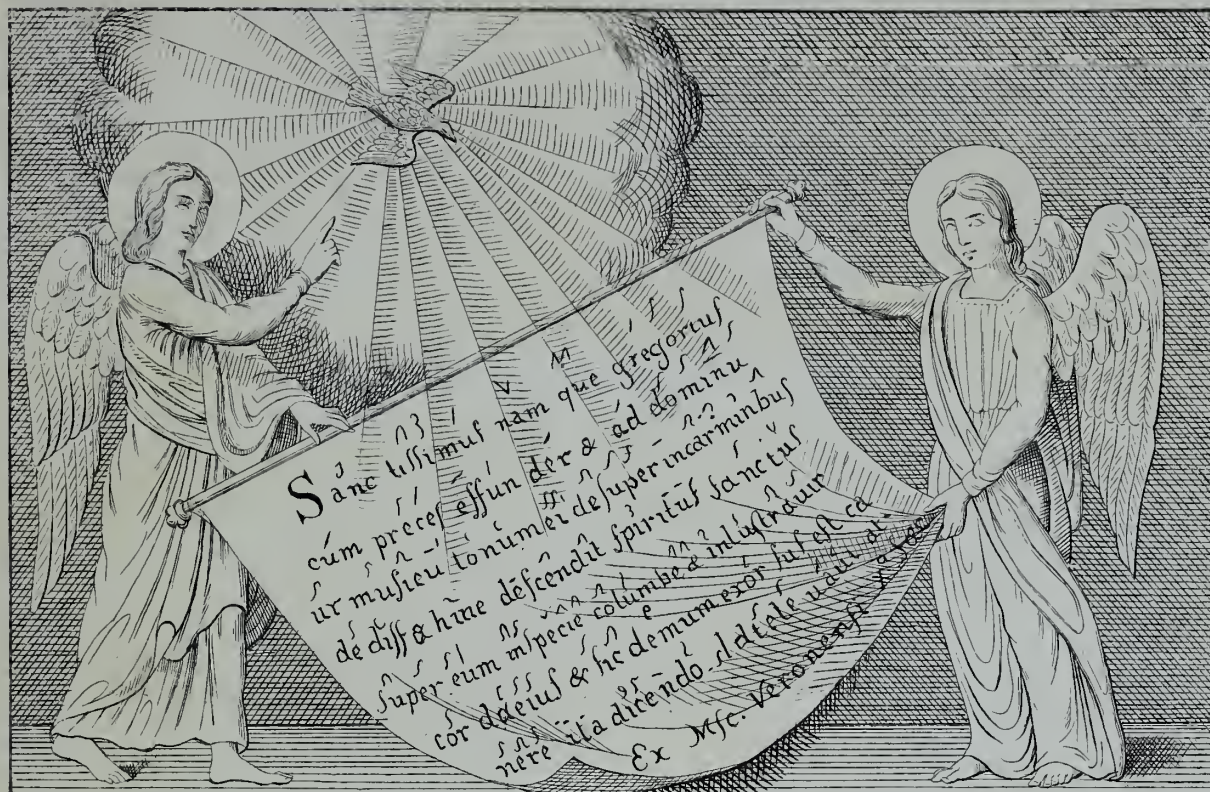 Sanctissimus nam que gregorius
cum preces effun der& ad dominu
ur musicu tonum ei desuper incarminibus
dediss& hinc descendit spiritus sanctus
super eum inspecie columbe & inlustravir
cor eius & sic demum exorsus est ca
nere ita dicendo
Ex Msc. Veronensi